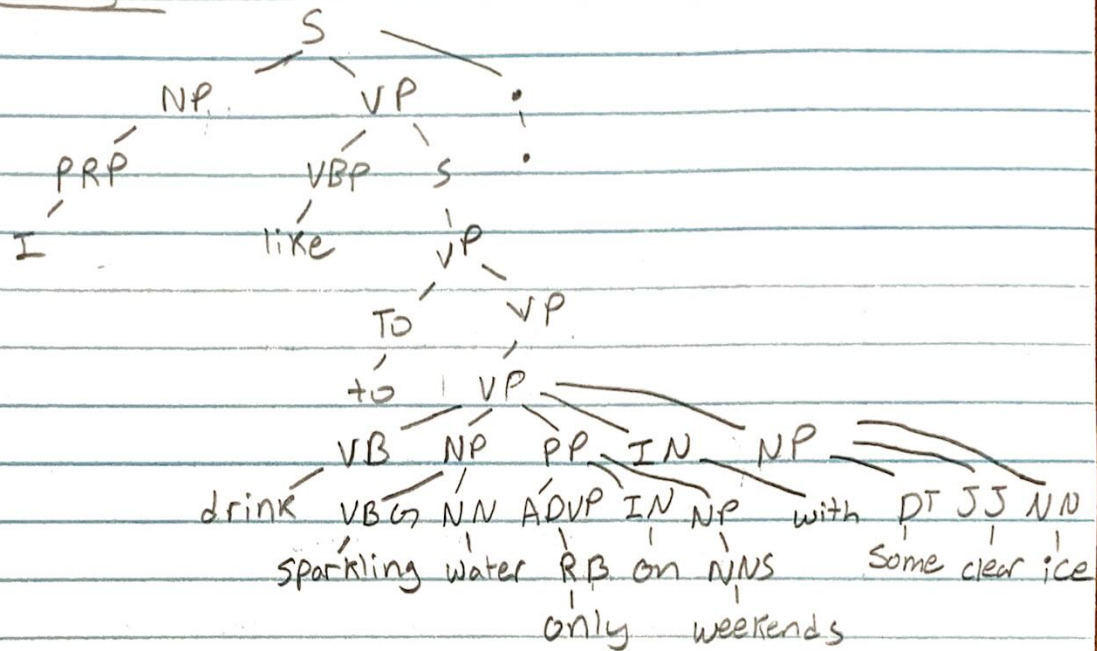 S
NP VP .
PRP VBP S .
I like VP
TO VP
to VP
VB NP PP IN NP
drink VBG NN ADVP IN NP with DT JJ NN
sparkling water RB on NNS some clear ice
only weekends